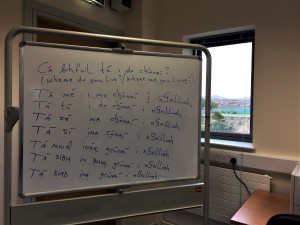 Cá bhfuil tú i do chónaí?
(where do you live?/where are you living?)
Tá mé i mo chónaí i nGaillimh
Tá tú i do chónaí i nGaillimh
Tá sé ina chónaí i nGaillimh
Tá sí ina cónaí i nGaillimh
Tá muid inár gcónaí i nGaillimh
Tá sibh in bhur gcónaí i nGaillimh
Tá siad ina gcónaí i nGaillimh